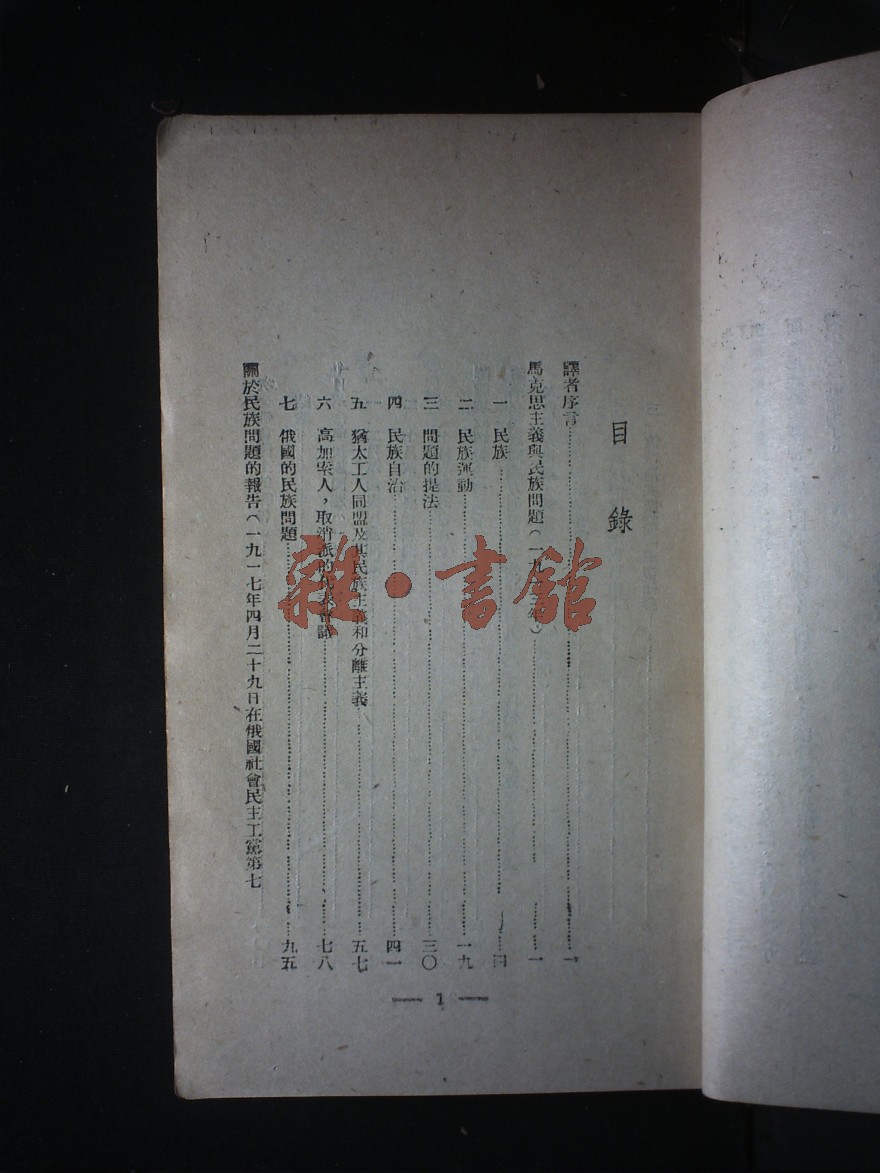 目錄
譯者序言……一
馬克思主義與民族問題(一九一三年)……一
一 民族……四
二 民族運動……一九
三 問題的提法……三〇
四 民族自治……四一
五 猶太工人同盟及其民族主義和分離主義……五七
六 高加索人,取消派的代表會議……七八
七 俄國的民族問題……九五
關於民族問題的報告(一九一七年四月二十九日在俄國社會民主工黨第七
— 1 —
雜·書館